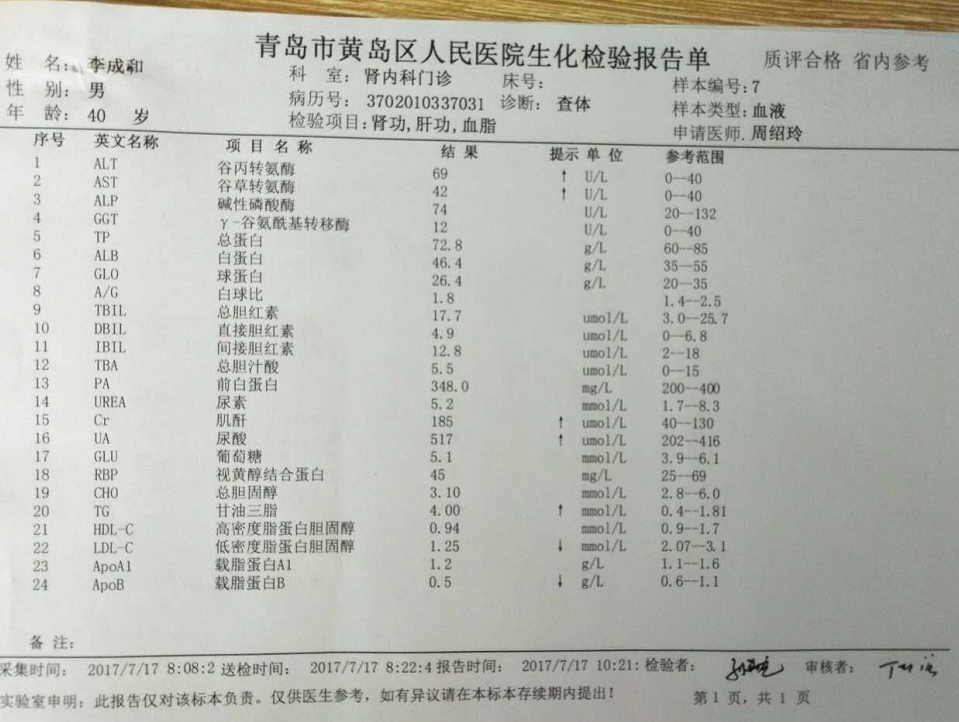 青岛市黄岛区人民医院生化检验报告单 质评合格 省内参考
姓 名: 李成和 科 室: 肾内科门诊 床号: 样本编号:7
性 别: 男 病历号: 3702010337031 诊断: 查体 样本类型:血液
年 龄: 40 岁 检验项目:肾功,肝功,血脂 申请医师.周绍玲
序号 英文名称 项 目 名 称 结 果 提示 单 位 参考范围
1 ALT 谷丙转氨酶 69 ↑ U/L 0--40
2 AST 谷草转氨酶 42 ↑ U/L 0--40
3 ALP 碱性磷酸酶 74 U/L 20--132
4 GGT γ-谷氨酰基转移酶 12 U/L 0--40
5 TP 总蛋白 72.8 g/L 60--85
6 ALB 白蛋白 46.4 g/L 35--55
7 GLO 球蛋白 26.4 g/L 20--35
8 A/G 白球比 1.8 1.4--2.5
9 TBIL 总胆红素 17.7 umol/L 3.0--25.7
10 DBIL 直接胆红素 4.9 umol/L 0--6.8
11 IBIL 间接胆红素 12.8 umol/L 2--18
12 TBA 总胆汁酸 5.5 umol/L 0--15
13 PA 前白蛋白 348.0 mg/L 200--400
14 UREA 尿素 5.2 mmol/L 1.7--8.3
15 Cr 肌酐 185 ↑ umol/L 40--130
16 UA 尿酸 517 ↑ umol/L 202--416
17 GLU 葡萄糖 5.1 mmol/L 3.9--6.1
18 RBP 视黄醇结合蛋白 45 mg/L 25--69
19 CHO 总胆固醇 3.10 mmol/L 2.8--6.0
20 TG 甘油三脂 4.00 ↑ mmol/L 0.4--1.81
21 HDL-C 高密度脂蛋白胆固醇 0.94 mmol/L 0.9--1.7
22 LDL-C 低密度脂蛋白胆固醇 1.25 ↓ mmol/L 2.07--3.1
23 ApoA1 载脂蛋白A1 1.2 g/L 1.1--1.6
24 ApoB 载脂蛋白B 0.5 ↓ g/L 0.6--1.1
备 注:
采集时间: 2017/7/17 8:08:2 送检时间: 2017/7/17 8:22:4 报告时间: 2017/7/17 10:21: 检验者: 审核者:
实验室申明: 此报告仅对该标本负责。仅供医生参考，如有异议请在本标本存续期内提出! 第 1 页, 共 1 页